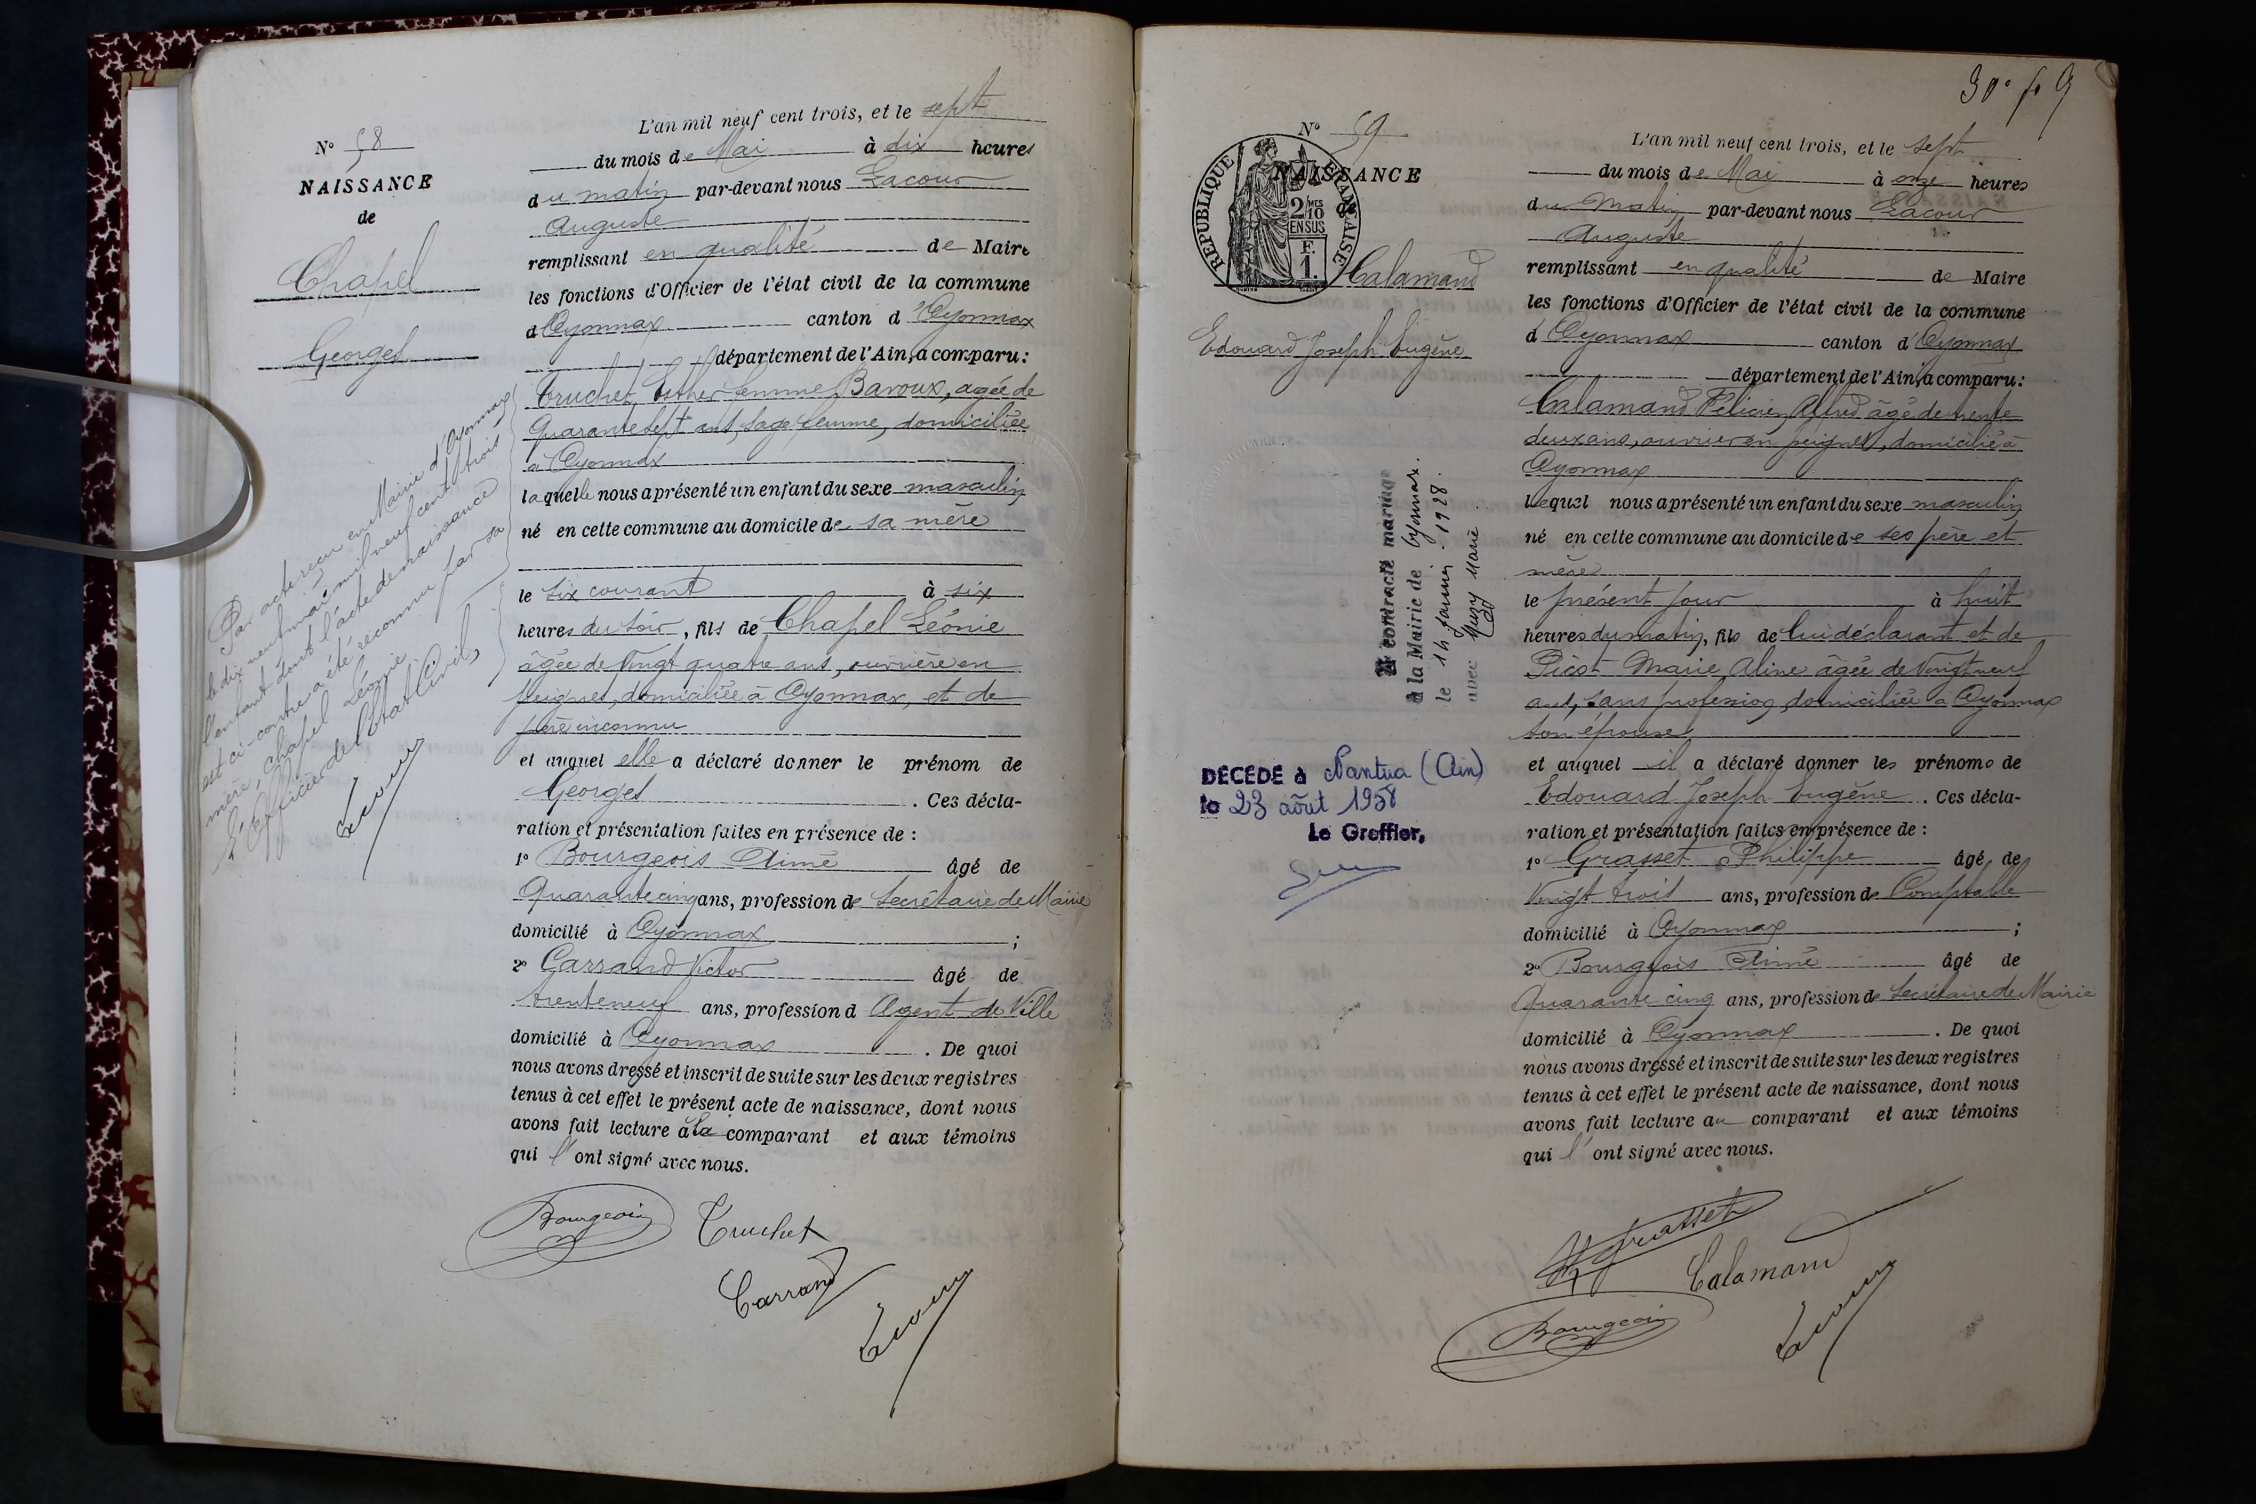 N° 58
NAISSANCE
de
Chapel
Georges
L'an mil neuf cent trois, et le sept
du mois de Mai à dix heures
du matin par-devant nous Lacour
Auguste
remplissant en qualité de Maire
les fonctions d'Officier de l'état civil de la commune
d'Oyonnax canton d'Oyonnax
département de l'Ain, a comparu :
Truchet Esther femme Baroux, agée de
Quarante sept ans, Sage femme, domiciliée
à Oyonnax
laquelle nous a présenté un enfant du sexe masculin
né en cette commune au domicile de sa mère
le six courant à six
heures du soir, fils de Chapel Léonie
âgée de Vingt quatre ans, ouvrière en
peignes, domiciliée à Oyonnax, et de
père inconnu
et auquel elle a déclaré donner le prénom de
Georges. Ces décla-
ration et présentation faites en présence de :
1° Bourgeois Aimé âgé de
Quarante cinq ans, profession de Secrétaire de Mairie
domicilié à Oyonnax ;
2° Carrand Victor âgé de
trente neuf ans, profession d Agent de Ville
domicilié à Oyonnax. De quoi
nous avons dressé et inscrit de suite sur les deux registres
tenus à cet effet le présent acte de naissance, dont nous
avons fait lecture à la comparant et aux témoins
qui l'ont signé avec nous.
Bourgeois Truchet
Carrand
Lacour
Par acte reçu en Mairie d'Oyonnax
le dix neuf mai mil neuf cent trois
l'enfant dont l'acte de naissance
est ci-contre a été reconnu par sa
mère, Chapel Léonie
L'Officier de l'Etat Civil,
Lacour
30e f° 9
N° 59
NAISSANCE
de
RÉPUBLIQUE FRANÇAISE
2/10 MES
EN SUS
F.
1.
Calamand
Edouard Joseph Eugène
A contracté mariage
à la Mairie de Oyonnax.
le 14 Janvier 1928.
avec Muzy Marie
DÉCÉDÉ à Nantua (Ain)
le 23 août 1958
Le Greffier,
L'an mil neuf cent trois, et le sept
du mois de Mai à onze heures
du Matin par-devant nous Lacour
Auguste
remplissant en qualité de Maire
les fonctions d'Officier de l'état civil de la commune
d'Oyonnax canton d'Oyonnax
département de l'Ain, a comparu :
Calamand Félicien Alfred âgé de trente
deux ans, ouvrier en peignes, domicilié à
Oyonnax
lequel nous a présenté un enfant du sexe masculin
né en cette commune au domicile de ses père et
mère
le présent jour à huit
heures du matin, fils de lui déclarant et de
Picot Marie Aline âgée de Vingt neuf
ans, sans profession, domiciliée à Oyonnax
son épouse
et auquel il a déclaré donner les prénoms de
Edouard Joseph Eugène. Ces décla-
ration et présentation faites en présence de :
1° Grasset Philippe âgé de
Vingt trois ans, profession de Comptable
domicilié à Oyonnax ;
2° Bourgeois Aimé âgé de
Quarante cinq ans, profession de Secrétaire de Mairie
domicilié à Oyonnax. De quoi
nous avons dressé et inscrit de suite sur les deux registres
tenus à cet effet le présent acte de naissance, dont nous
avons fait lecture au comparant et aux témoins
qui l'ont signé avec nous.
Grasset
Calamand
Bourgeois
Lacour